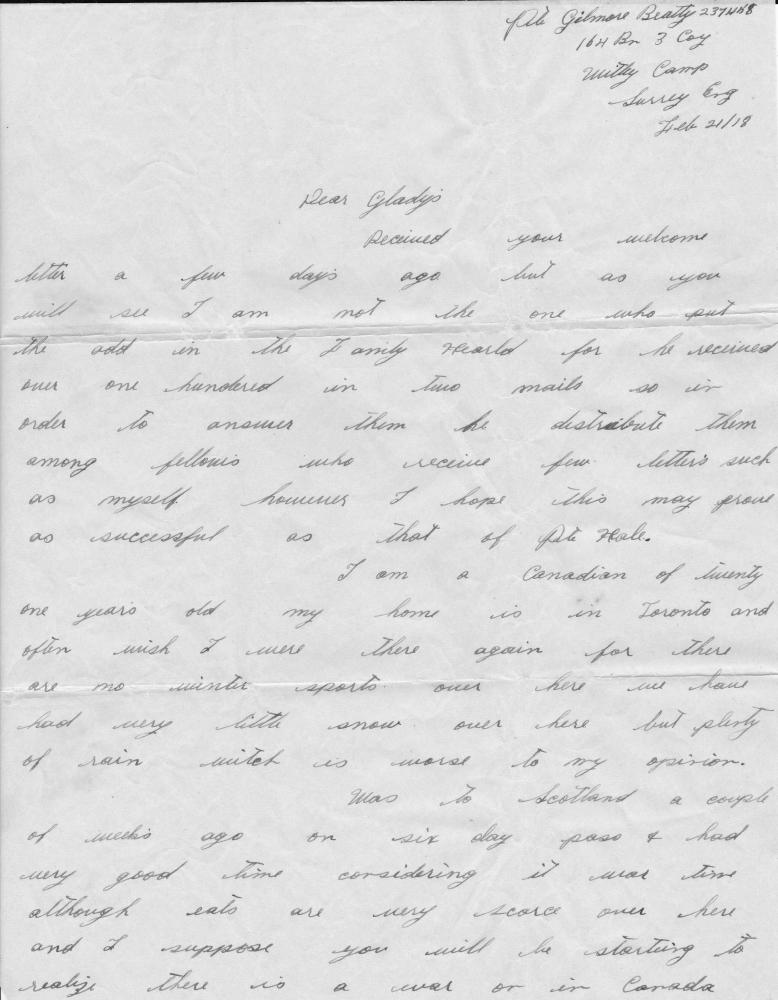 Pte Gilmore Beatty 237468
164 Bn 3 Coy
Witley Camp
Surrey Eng
Feb 21/18
Dear Gladys
Received your welcome
letter a few days ago but as you
will see I am not the one who put
the add in the Family Hearld for he received
over one hundered in two mails so in
order to answer them he distribute them
among fellows who receive few letters such
as myself however I hope this may prove
as successful as that of Pte Hale.
I am a Canadian of twenty
one years old my home is in Toronto and
often wish I were there again for there
are no winter sports over here we have
had very little snow over here but plenty
of rain witch is worse to my opinion.
Was to Scotland a couple
of weeks ago on six day pass & had
very good time considering it war time
although eats are very scarce over here
and I suppose you will be starting to
realize there is a war on in Canada